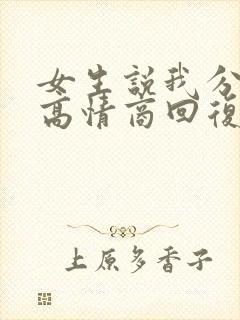 女生說我分
高情商回復
上原多香子